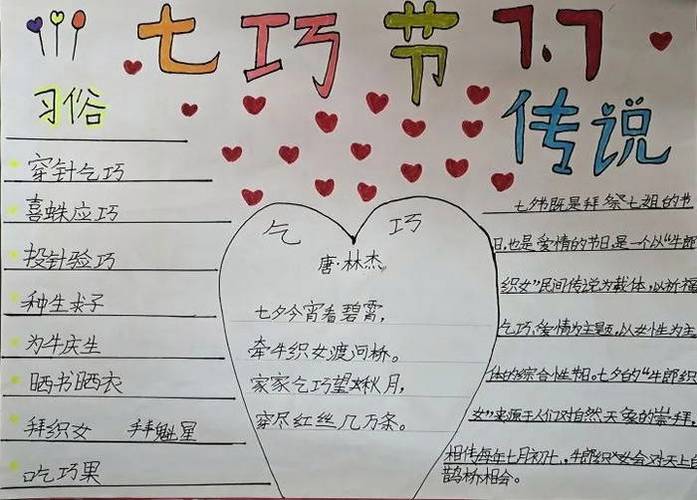 七巧节 7.7
习俗
穿针乞巧
喜蛛应巧
投针验巧
种生求子
为牛庆生
晒书晒衣
拜织女 拜魁星
吃巧果
乞巧
唐·林杰
七夕今宵看碧霄,
牵牛织女渡河桥。
家家乞巧望秋月,
穿尽红丝几万条。
传说
七夕节既是拜祭七姐的节
日,也是爱情的节日,是一个以“牛郎
织女”民间传说为载体,以祈福
乞巧、爱情为主题,以女性为主
体的综合性节日。七夕的“牛郎织
女”来源于人们对自然天象的崇拜,
相传每年七月初七,牛郎织女会于天上的
鹊桥相会。